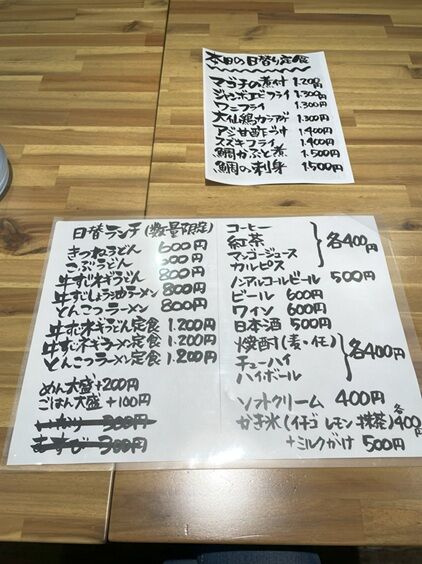 本日の日替り定食
マゴチの煮付 1.200円
ジャンボエビフライ 1.300円
ワニフライ 1.300円
大仙鶏カラアゲ 1.300円
アジ甘酢どうけ 1.400円
スズキフライ 1.400円
鯛かぶと煮 1.500円
鯛の刺身 1.500円
日替ランチ(数量限定)
きつねうどん 600円
こぶうどん 600円
牛すじネギうどん 800円
牛すじしょう油ラーメン 800円
とんこつラーメン 800円
牛すじネギうどん定食 1.200円
牛すじネギラーメン定食 1.200円
とんこつラーメン定食 1.200円
めん大盛+200円
ごはん大盛+100円
いなり 300円
むすび 300円
コーヒー
紅茶
マンゴージュース
カルピス
各400円
ノンアルコールビール 500円
ビール 600円
ワイン 600円
日本酒 500円
焼酎(麦・芋)
チューハイ
ハイボール
各400円
ソフトクリーム 400円
かき氷(イチゴ レモン 抹茶)各400円
+ミルクがけ 500円